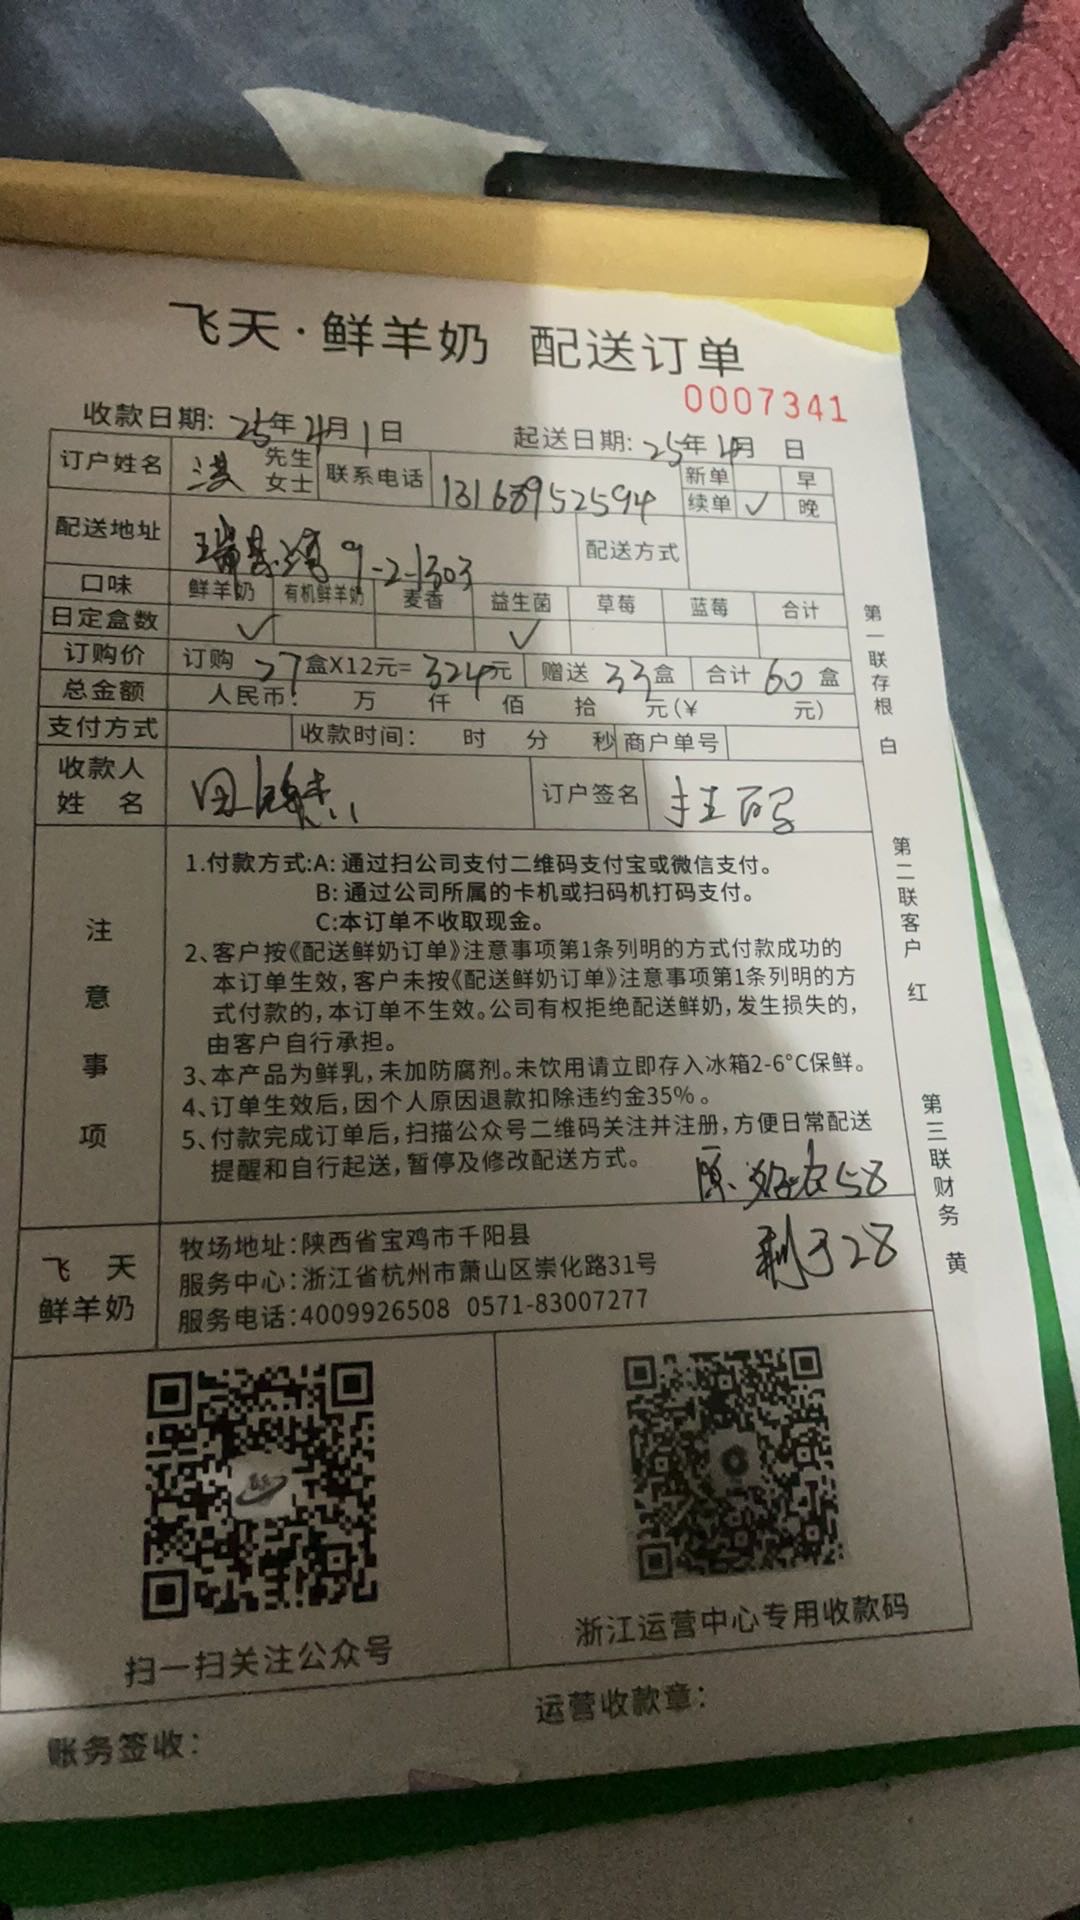 飞天·鲜羊奶 配送订单
0007341
收款日期: 25年4月1日 起送日期: 25年4月 日
订户姓名 先生 女士 联系电话 13168952594 新单 早
续单 ✓ 晚
配送地址 9-2-1303 配送方式
口味 鲜羊奶 有机鲜羊奶 麦香 益生菌 草莓 蓝莓 合计
日定盒数 ✓ ✓
订购价 订购 27 盒X12元= 324元 赠送 33 盒 合计 60 盒
总金额 人民币: 万 仟 佰 拾 元(¥ 元)
支付方式 收款时间: 时 分 秒 商户单号
收款人姓名 田 订户签名 扫码
注意事项
1.付款方式:A: 通过扫公司支付二维码支付宝或微信支付。
B: 通过公司所属的卡机或扫码机打码支付。
C:本订单不收取现金。
2、客户按《配送鲜奶订单》注意事项第1条列明的方式付款成功的
本订单生效,客户未按《配送鲜奶订单》注意事项第1条列明的方
式付款的,本订单不生效。公司有权拒绝配送鲜奶,发生损失的,
由客户自行承担。
3、本产品为鲜乳,未加防腐剂。未饮用请立即存入冰箱2-6°C保鲜。
4、订单生效后,因个人原因退款扣除违约金35%。
5、付款完成订单后,扫描公众号二维码关注并注册,方便日常配送
提醒和自行起送,暂停及修改配送方式。
原 58
剩于28
飞天
鲜羊奶
牧场地址:陕西省宝鸡市千阳县
服务中心:浙江省杭州市萧山区崇化路31号
服务电话:4009926508 0571-83007277
扫一扫关注公众号
浙江运营中心专用收款码
账务签收:
运营收款章:
第一联存根 白
第二联客户 红
第三联财务 黄